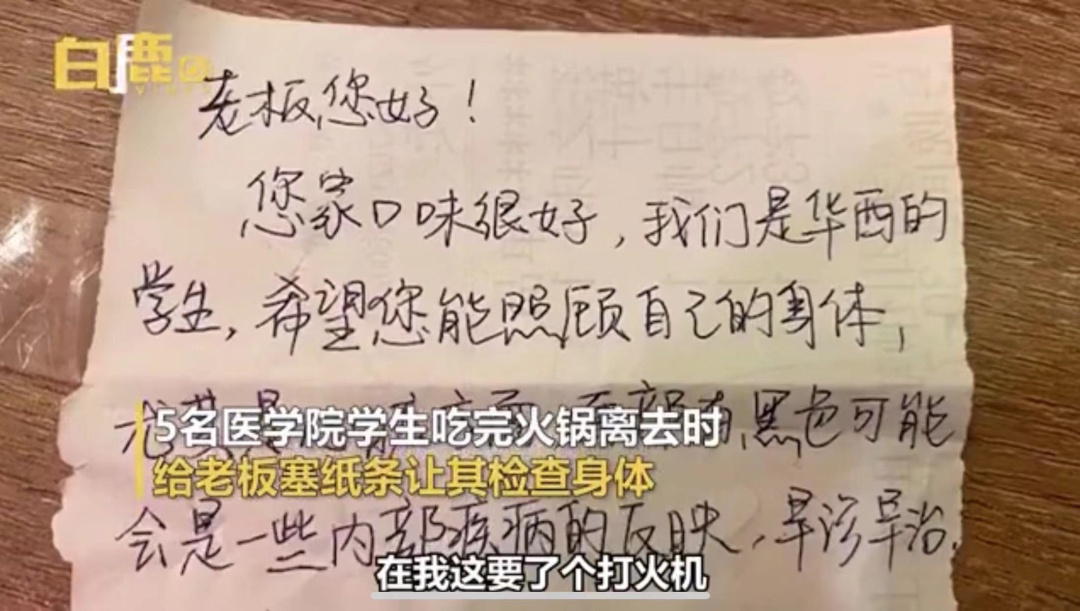 白鹿
老板您好！
您家口味很好，我们是华西的
学生，希望您能照顾自己的身体，
尤其是
黑色可能
5名医学院学生吃完火锅离去时
给老板塞纸条让其检查身体
会是一些内部疾病的反映，早诊早治。
在我这要了个打火机